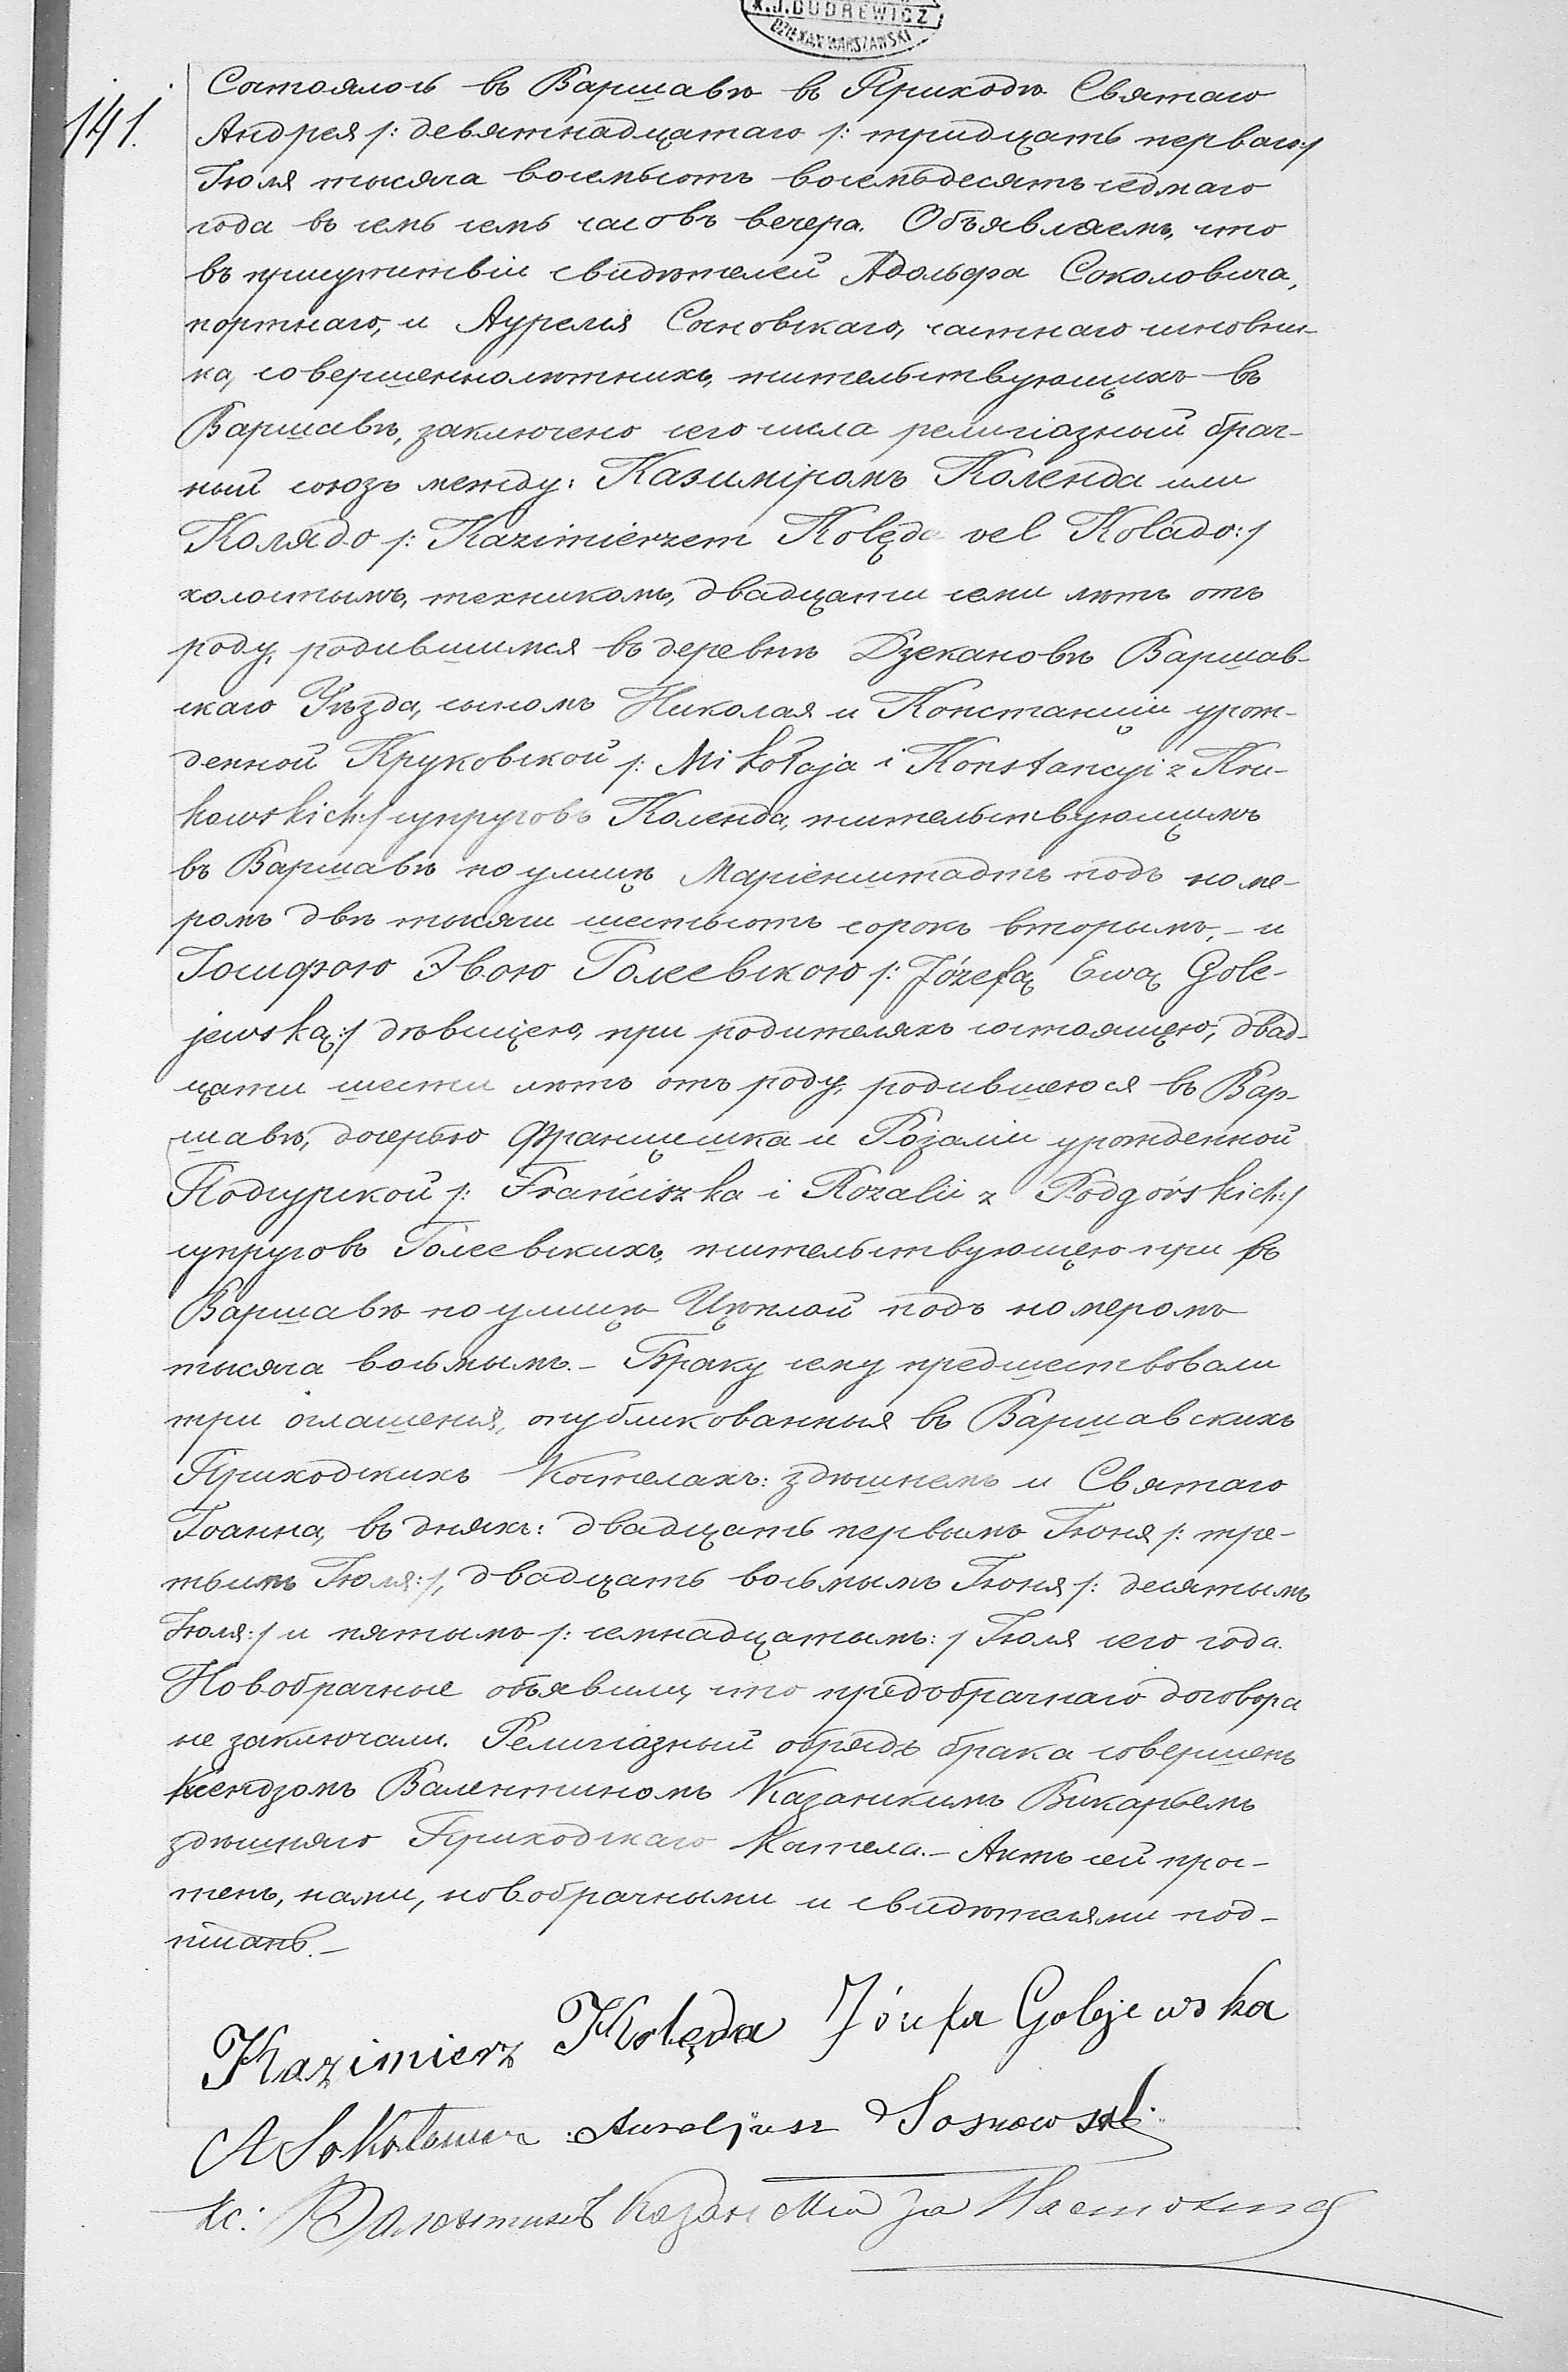 K.J.DUDREWICZ
DZIEKAN WARSZAWSKI
141.
Состоялось въ Варшавѣ въ Приходѣ Святаго
Андрея /: девятнадцатаго /: тридцать перваго:/
Іюля тысяча восемьсотъ восемьдесятъ седмаго
года въ семь семь часовъ вечера. Объявляемъ, что
въ присутствіи свидѣтелей Адольфа Соколовича,
портнаго, и Аурелія Сосновскаго, частнаго чиновни-
ка, совершеннолѣтнихъ, жительствующихъ въ
Варшавѣ, заключено сего числа религіозный брач-
ный союзъ между: Казиміромъ Коленда или
Колядо /: Kazimierzem Kolęda vel Kolado:/
холостымъ, техникомъ, двадцати семи лѣтъ отъ
роду, родившимся въ деревнѣ Дзекановѣ Варшав-
скаго Уѣзда, сыномъ Николая и Констанціи урож-
денной Круковской /: Mikołaja i Konstancyi z Kru-
kowskich:/ супруговъ Коленда, жительствующимъ
въ Варшавѣ по улицѣ Маріенштадтъ подъ номе-
ромъ двѣ тысячи шестьсотъ сорокъ вторымъ, – и
Іосифою Эвою Голеевскою /: Józefą Ewą Gole-
jewską:/ дѣвицею, при родителяхъ состоящею, двад-
цати шести лѣтъ отъ роду, родившеюся въ Вар-
шавѣ, дочерью Францишка и Розаліи урожденной
Подгурской /: Franciszka i Rozalii z Podgórskich:/
супруговъ Голеевскихъ, жительствующею при въ
Варшавѣ по улицѣ Цѣплой подъ номеромъ
тысяча восьмымъ. – Браку сему предшествовали
три оглашенія, опубликованныя въ Варшавскихъ
Приходскихъ Костелахъ: здѣшнемъ и Святаго
Іоанна, въ дняхъ: двадцать первымъ Іюня /: тре-
тьимъ Іюля:/, двадцать восьмымъ Іюня /: десятымъ
Іюля:/ и пятымъ /: семнадцатымъ:/ Іюля сего года.
Новобрачные объявили, что предбрачнаго договора
не заключали. Религіозный обрядъ брака совершенъ
Ксендзомъ Валентиномъ Казанскимъ Викаріемъ
здѣшняго Приходскаго Костела. – Актъ сей проч-
тенъ, нами, новобрачными и свидѣтелями под-
писанъ. –
Kazimierz Kolęda Józefa Golejewska
A Sokołowicz Aureljusz Sosnowski
Кс: Валентинъ Казанскій за Настоятеля